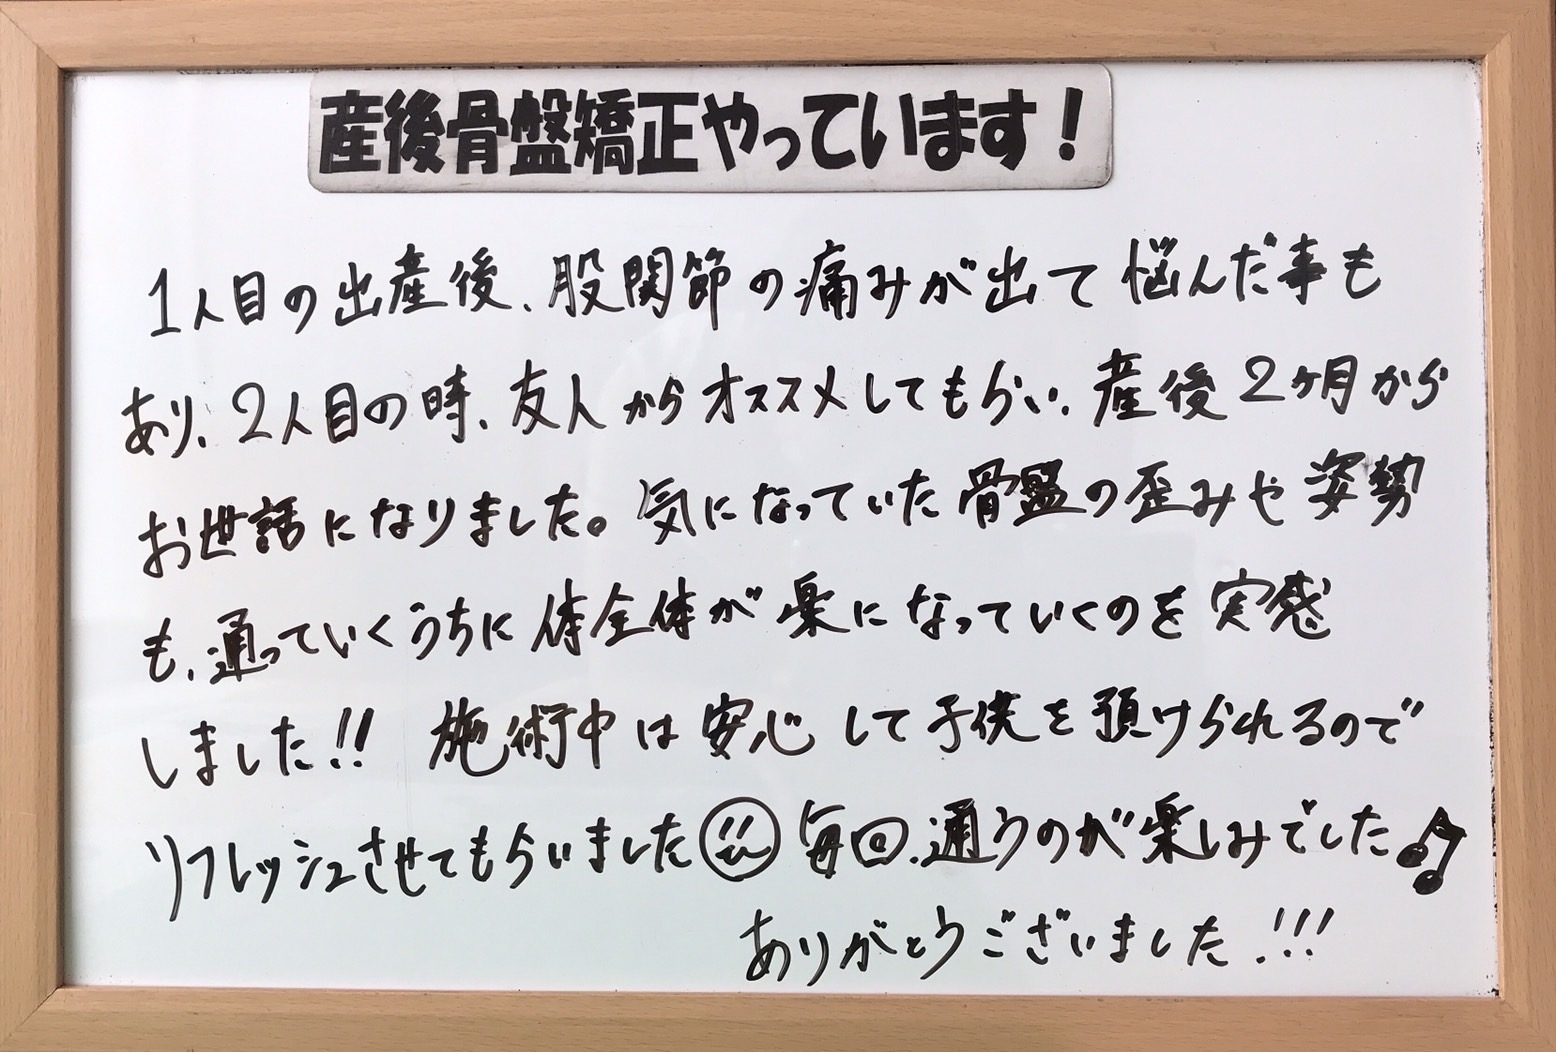 産後骨盤矯正やっています！
1人目の出産後、股関節の痛みが出て悩んだ事も
あり、2人目の時、友人からオススメしてもらい、産後2ヶ月から
お世話になりました。気になっていた骨盤の歪みや姿勢
も、通っていくうちに体全体が楽になっていくのを実感
しました!! 施術中は安心して子供を預けられるので
リフレッシュさせてもらいました 毎回、通うのが楽しみでした♪
ありがとうございました!!!